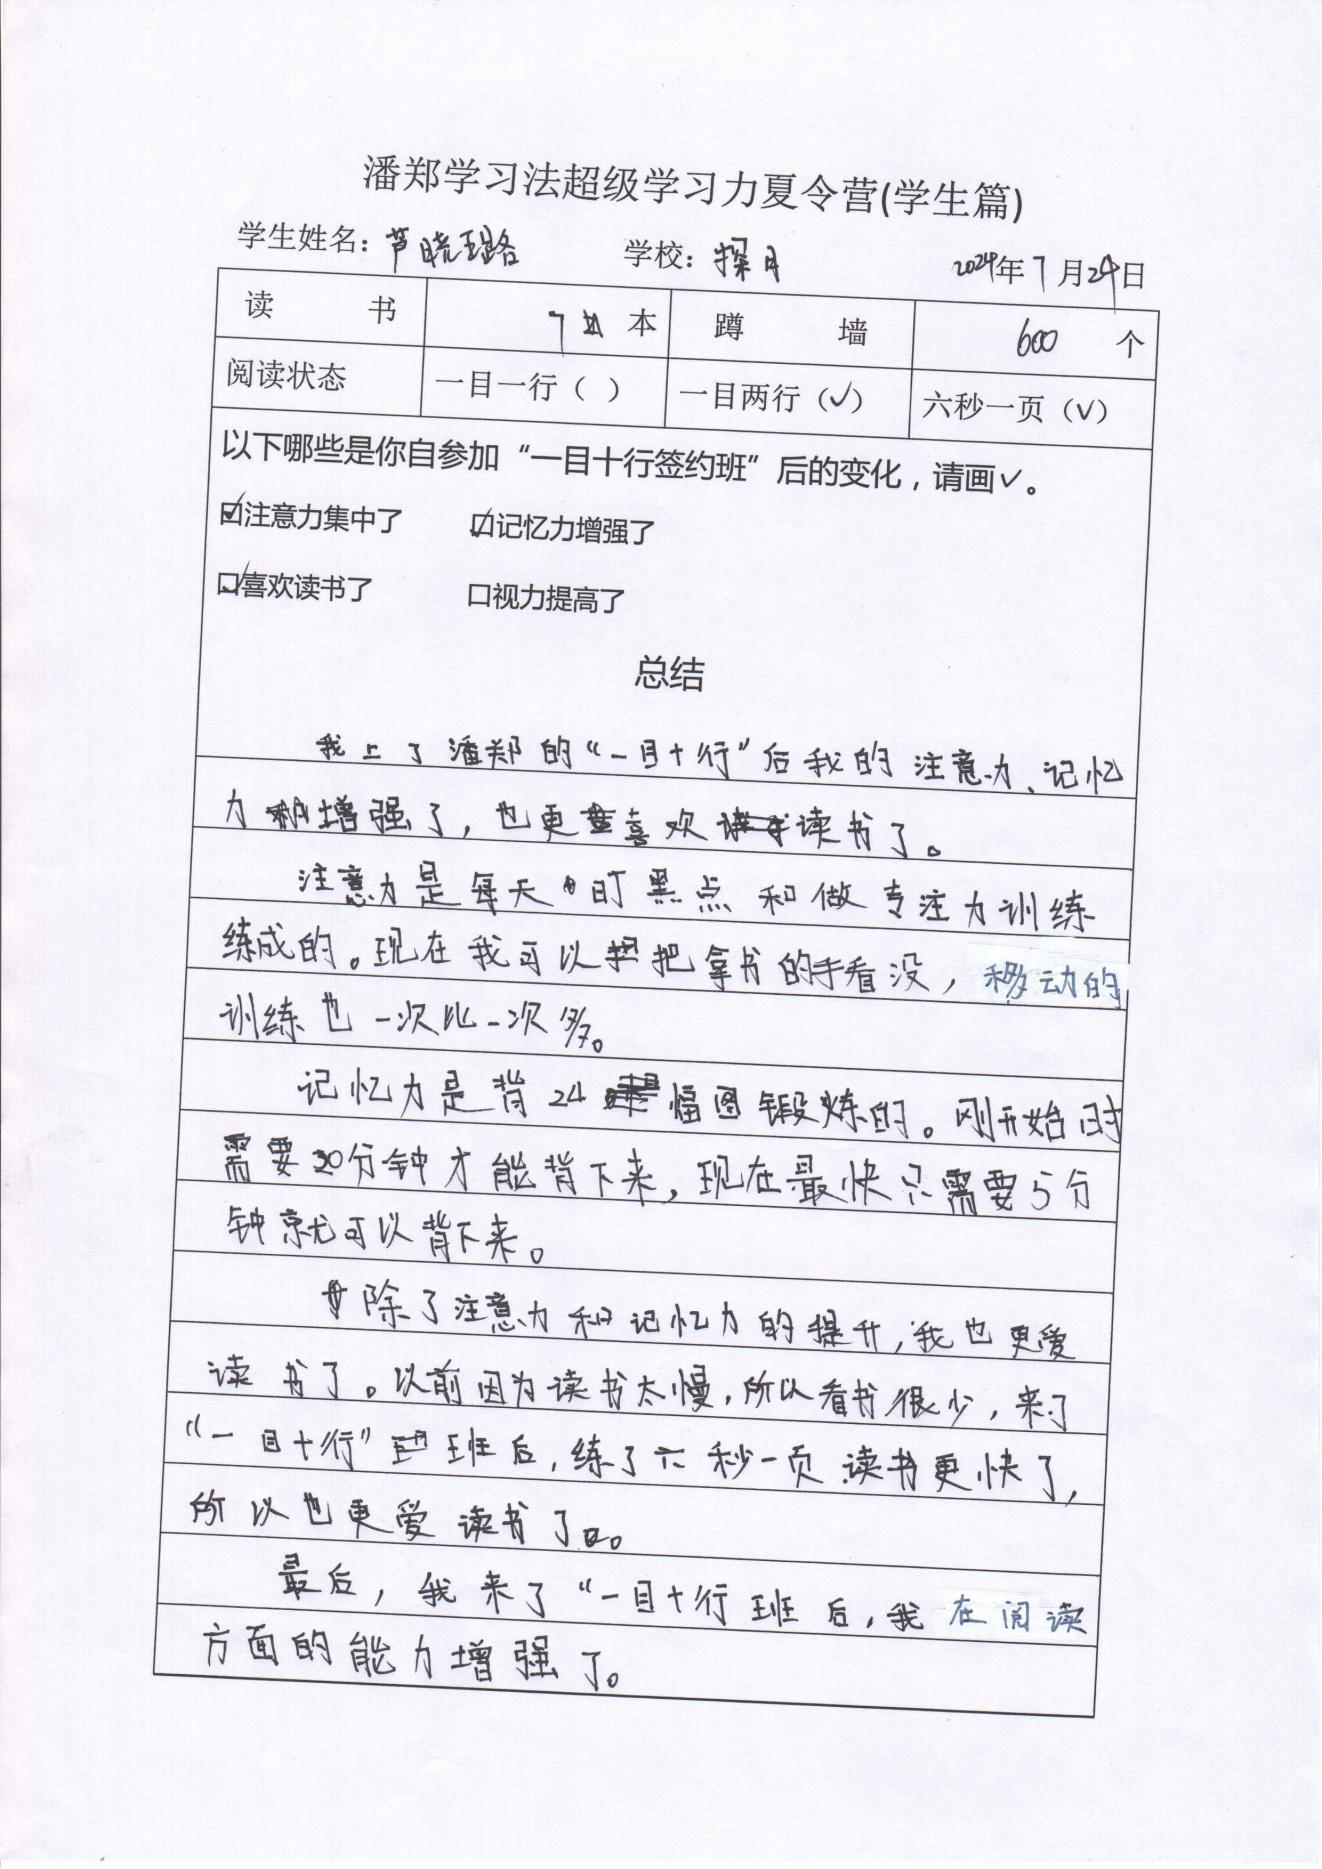 潘郑学习法超级学习力夏令营(学生篇)
学生姓名：芦晓璐 学校：探月 2024年7月24日
读 书 7本 蹲 墙 600个
阅读状态 一目一行（ ） 一目两行（✓） 六秒一页（✓）
以下哪些是你自参加“一目十行签约班”后的变化，请画✓。
☑注意力集中了 ☑记忆力增强了
☑喜欢读书了 口视力提高了
总结
我上了潘郑的“一目十行”后我的注意力、记忆
力增强了，也更喜欢读书了。
注意力是每天盯黑点和做专注力训练
练成的。现在我可以把拿书的手看没，移动的
训练也一次比一次多。
记忆力是背24幅图锻炼的。刚开始时
需要30分钟才能背下来，现在最快只需要5分
钟就可以背下来。
除了注意力和记忆力的提升，我也更爱
读书了。以前因为读书太慢，所以看书很少，来了
“一目十行”班后，练了六秒一页读书更快了，
所以也更爱读书了。
最后，我来了“一目十行班后，我在阅读
方面的能力增强了。